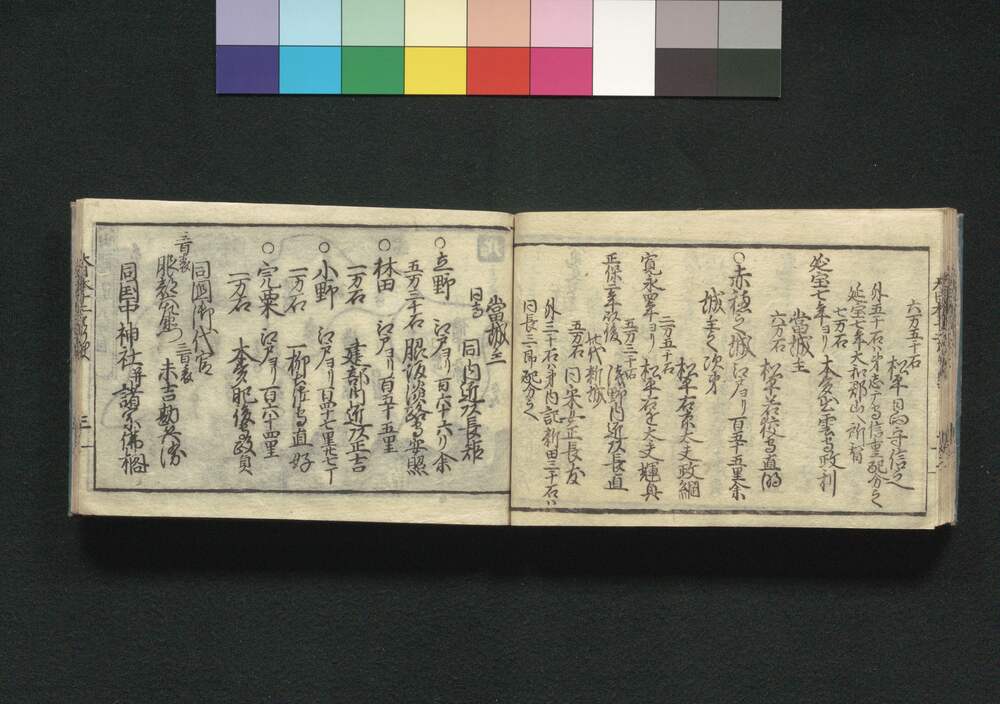 六万五千石
松平日向守信之
外五千石ハ弟
延宝七年大和郡山ヘ所替
七万石
延宝七年ヨリ 本多出雲守政利
當城主
六万石
松平若狭守直明
○赤穂之城 江戸ヨリ百五十五里余
城主之次第
三万五千石
松平右京大夫政綱
寛永四年ヨリ 松平右近大夫輝興
五万三千石
正保二年以後 浅野内匠頭長直
此代新城
五万石
同采女正長友
外三千石ハ弟内記新田三千石ハ
同長三郎配分之
當城主
同高
同内匠頭長矩
○立野 江戸ヨリ百六十六リ余
五万三千石 脇坂淡路守安照
○林田 江戸ヨリ百五十五里
一万石 建部内匠頭政吉
○小野 江戸ヨリ百四十七里廿七丁
一万石 一柳
○宍粟 江戸ヨリ百六十四里
一万石 本多肥後守政貞
同国御代官
服部六左衛門
末吉勘兵衛
同国中神社并諸宗佛閣
三